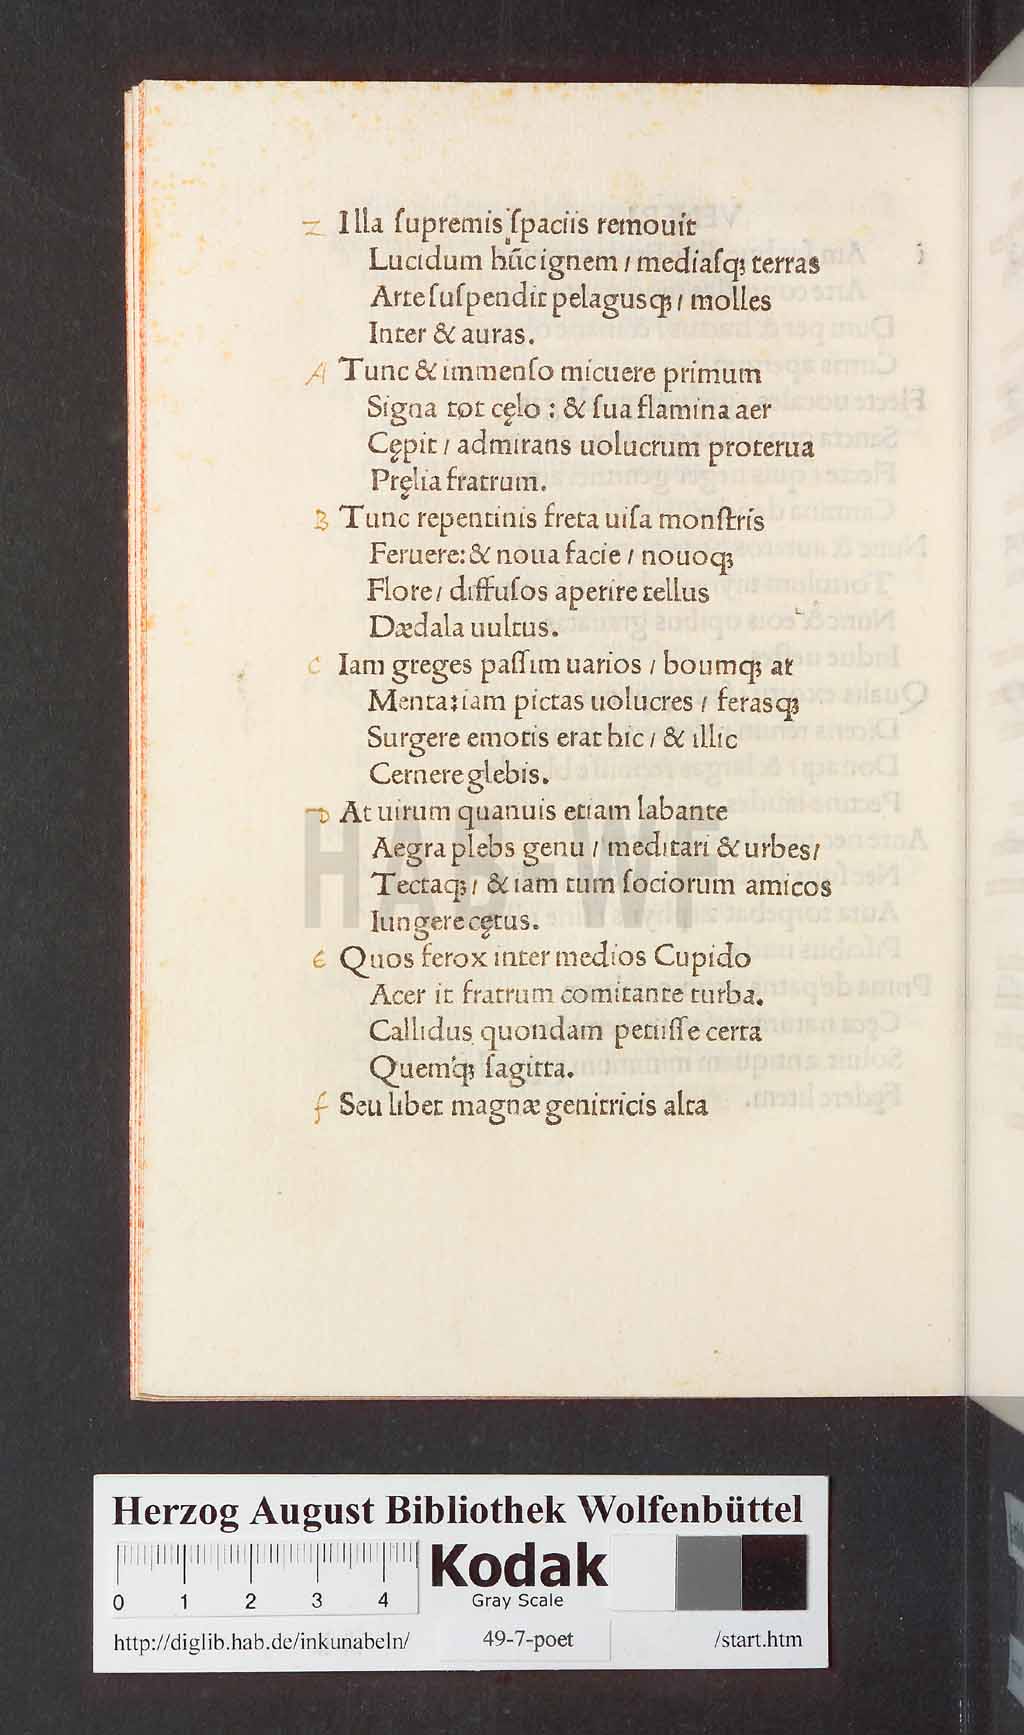 Z Illa ſupremis ſpaciis remouit
Lucidum hũc ignem / mediaſqꝫ terras
Arte ſuſpendit pelaguſqꝫ / molles
Inter & auras.
A Tunc & immenſo micuere primum
Signa tot cęlo : & ſua flamina aer
Cępit / admirans uolucrum proterua
Pręlia fratrum.
B Tunc repentinis freta uiſa monſtris
Feruere: & noua facie / nouoqꝫ
Flore / diffuſos aperire tellus
Dædala uultus.
C Iam greges paſſim uarios / boumqꝫ at
Menta: iam pictas uolucres / feraſqꝫ
Surgere emotis erat hic / & illic
Cernere glebis.
D At uirum quanuis etiam labante
Aegra plebs genu / meditari & urbes /
Tectaqꝫ / & iam tum ſociorum amicos
Iungere cętus.
E Quos ferox inter medios Cupido
Acer it fratrum comitante turba.
Callidus quondam petiiſſe certa
Quemqꝫ ſagitta.
f Seu libet magnæ genitricis alta
HAB WF
Herzog August Bibliothek Wolfenbüttel
0 1 2 3 4
Kodak
Gray Scale
http://diglib.hab.de/inkunabeln/ 49-7-poet /start.htm